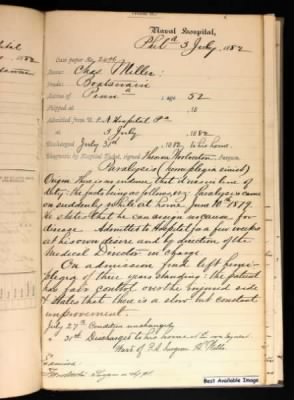 Naval Hospital,
Phila 3 July, 1882
Case paper No.
Name: Chas Miller:
Rank: Boatswain
Native of Penn ; age 52
Shipped at 18
Admitted from U.S.N Hospital Pa
3 July 1882
Discharged July 31st 1882 to his home.
Diagnosis by Hospital Ticket, signed Thomas Wolverton Surgeon.
Paralysis (hemiplegia sinis)
Origin there is no evidence that it is in line of
duty: the facts being as follows, viz: Paralysis came
on suddenly while at home June 10th 1879.
He states that he can assign no cause for
disease. Admitted to Hospital for a few weeks
at his own desire and by direction of the
Medical Director in charge
On admission find left hemi-
plegia of three years standing: the patient
has fair control over the injured side
& states that there is a slow but constant
improvement.
July 27th Condition unchanged
" 31st Discharged to his home at his own request
Ward of P.A. Surgeon
Examined
Surgeon U.S.N.
Best Available Image